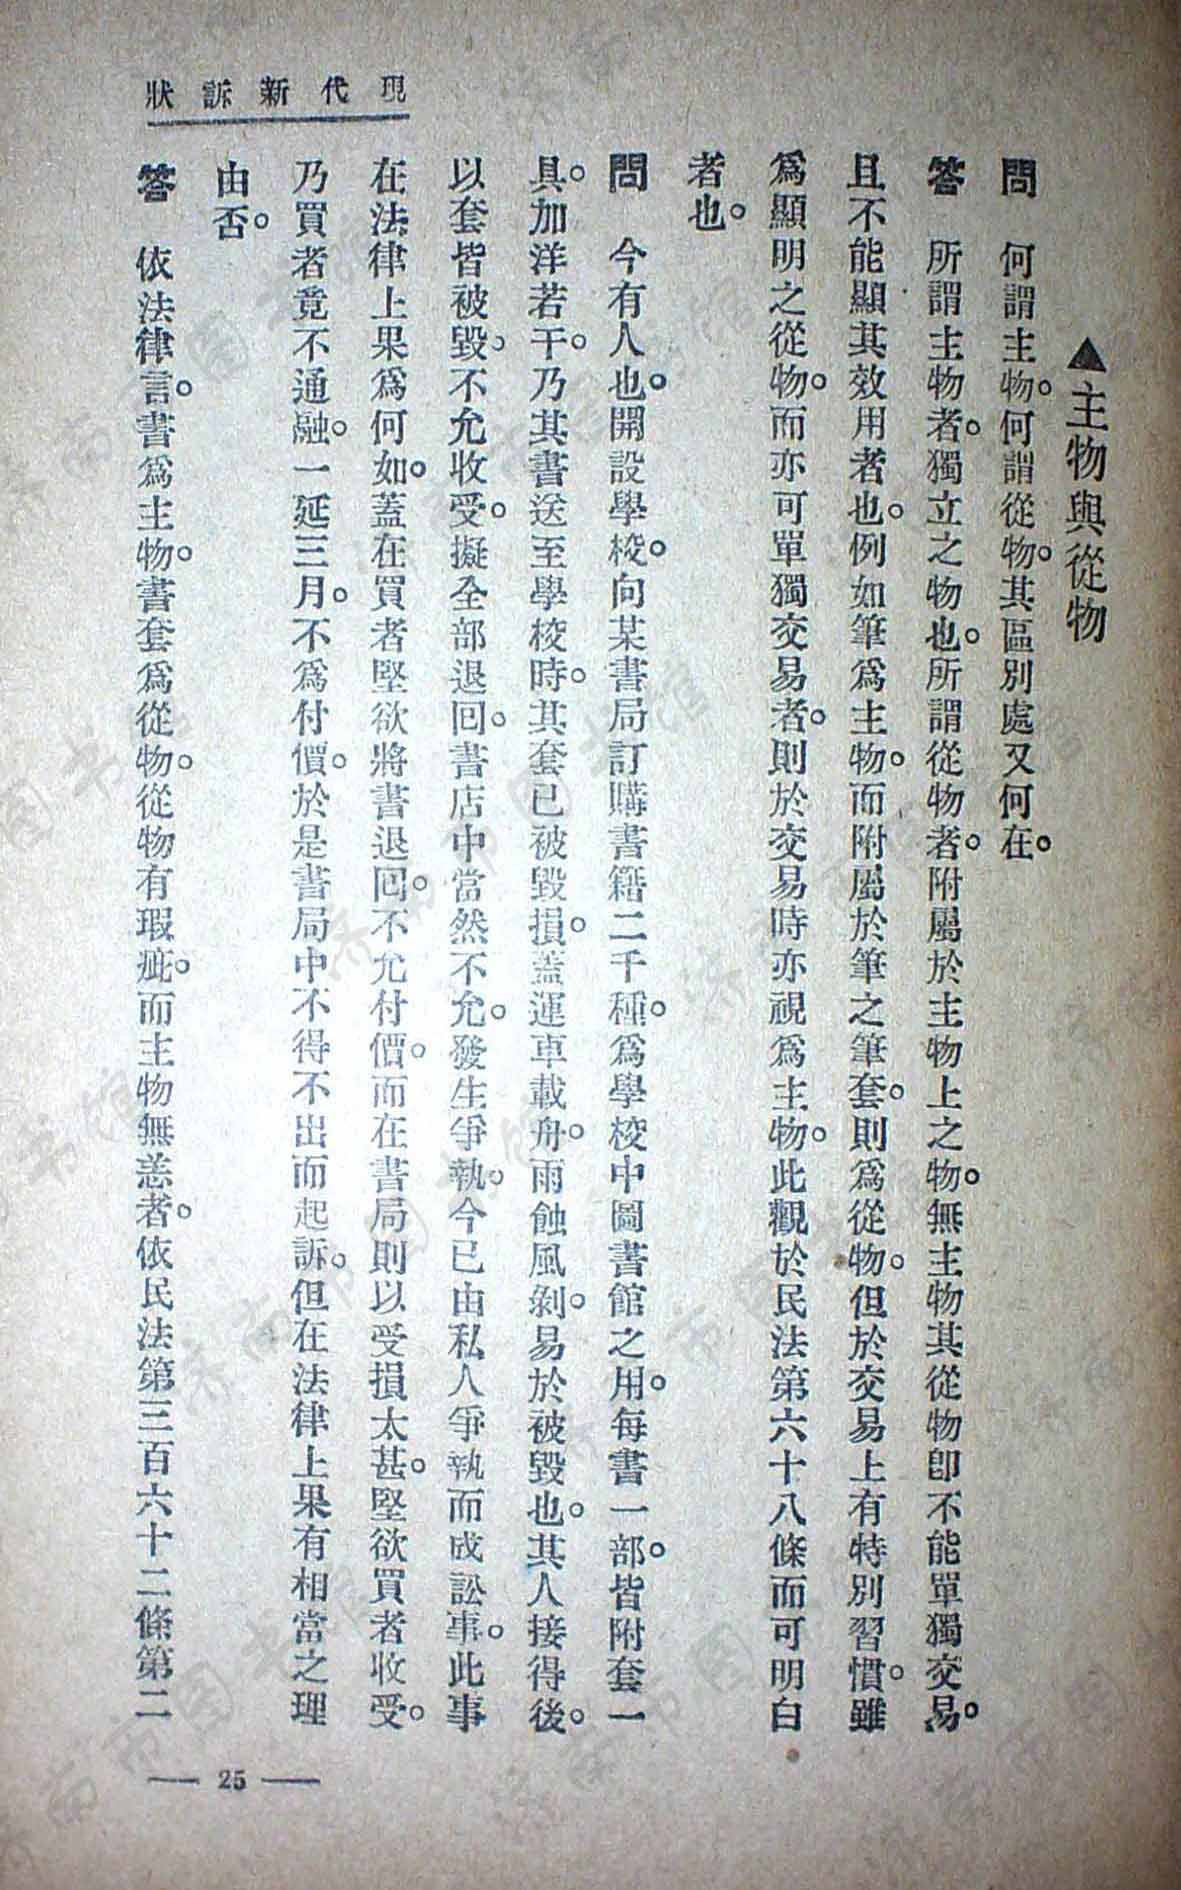 現代新訴狀
▲主物與從物
問　何謂主物。何謂從物。其區別處又何在。
答　所謂主物者。獨立之物也。所謂從物者。附屬於主物上之物。無主物其從物卽不能單獨交易。
且不能顯其效用者也。例如筆爲主物。而附屬於筆之筆套。則爲從物。但於交易上有特別習慣。雖
爲顯明之從物。而亦可單獨交易者。則於交易時亦視爲主物。此觀於民法第六十八條而可明白
者也。
問　今有人也。開設學校。向某書局訂購書籍二千種。爲學校中圖書館之用。每書一部。皆附套一
具。加洋若干。乃其書送至學校時。其套已被毀損。蓋運車載舟。雨蝕風剝。易於被毀也。其人接得後。
以套皆被毀。不允收受。擬全部退回。書店中當然不允。發生爭執。今已由私人爭執而成訟事。此事
在法律上果爲何如。蓋在買者堅欲將書退回。不允付價。而在書局則以受損太甚。堅欲買者收受。
乃買者竟不通融。一延三月。不爲付價。於是書局中不得不出而起訴。但在法律上果有相當之理
由否。
答　依法律言。書爲主物。書套爲從物。從物有瑕疵。而主物無恙者。依民法第三百六十二條第二
— 25 —
济南市图书馆